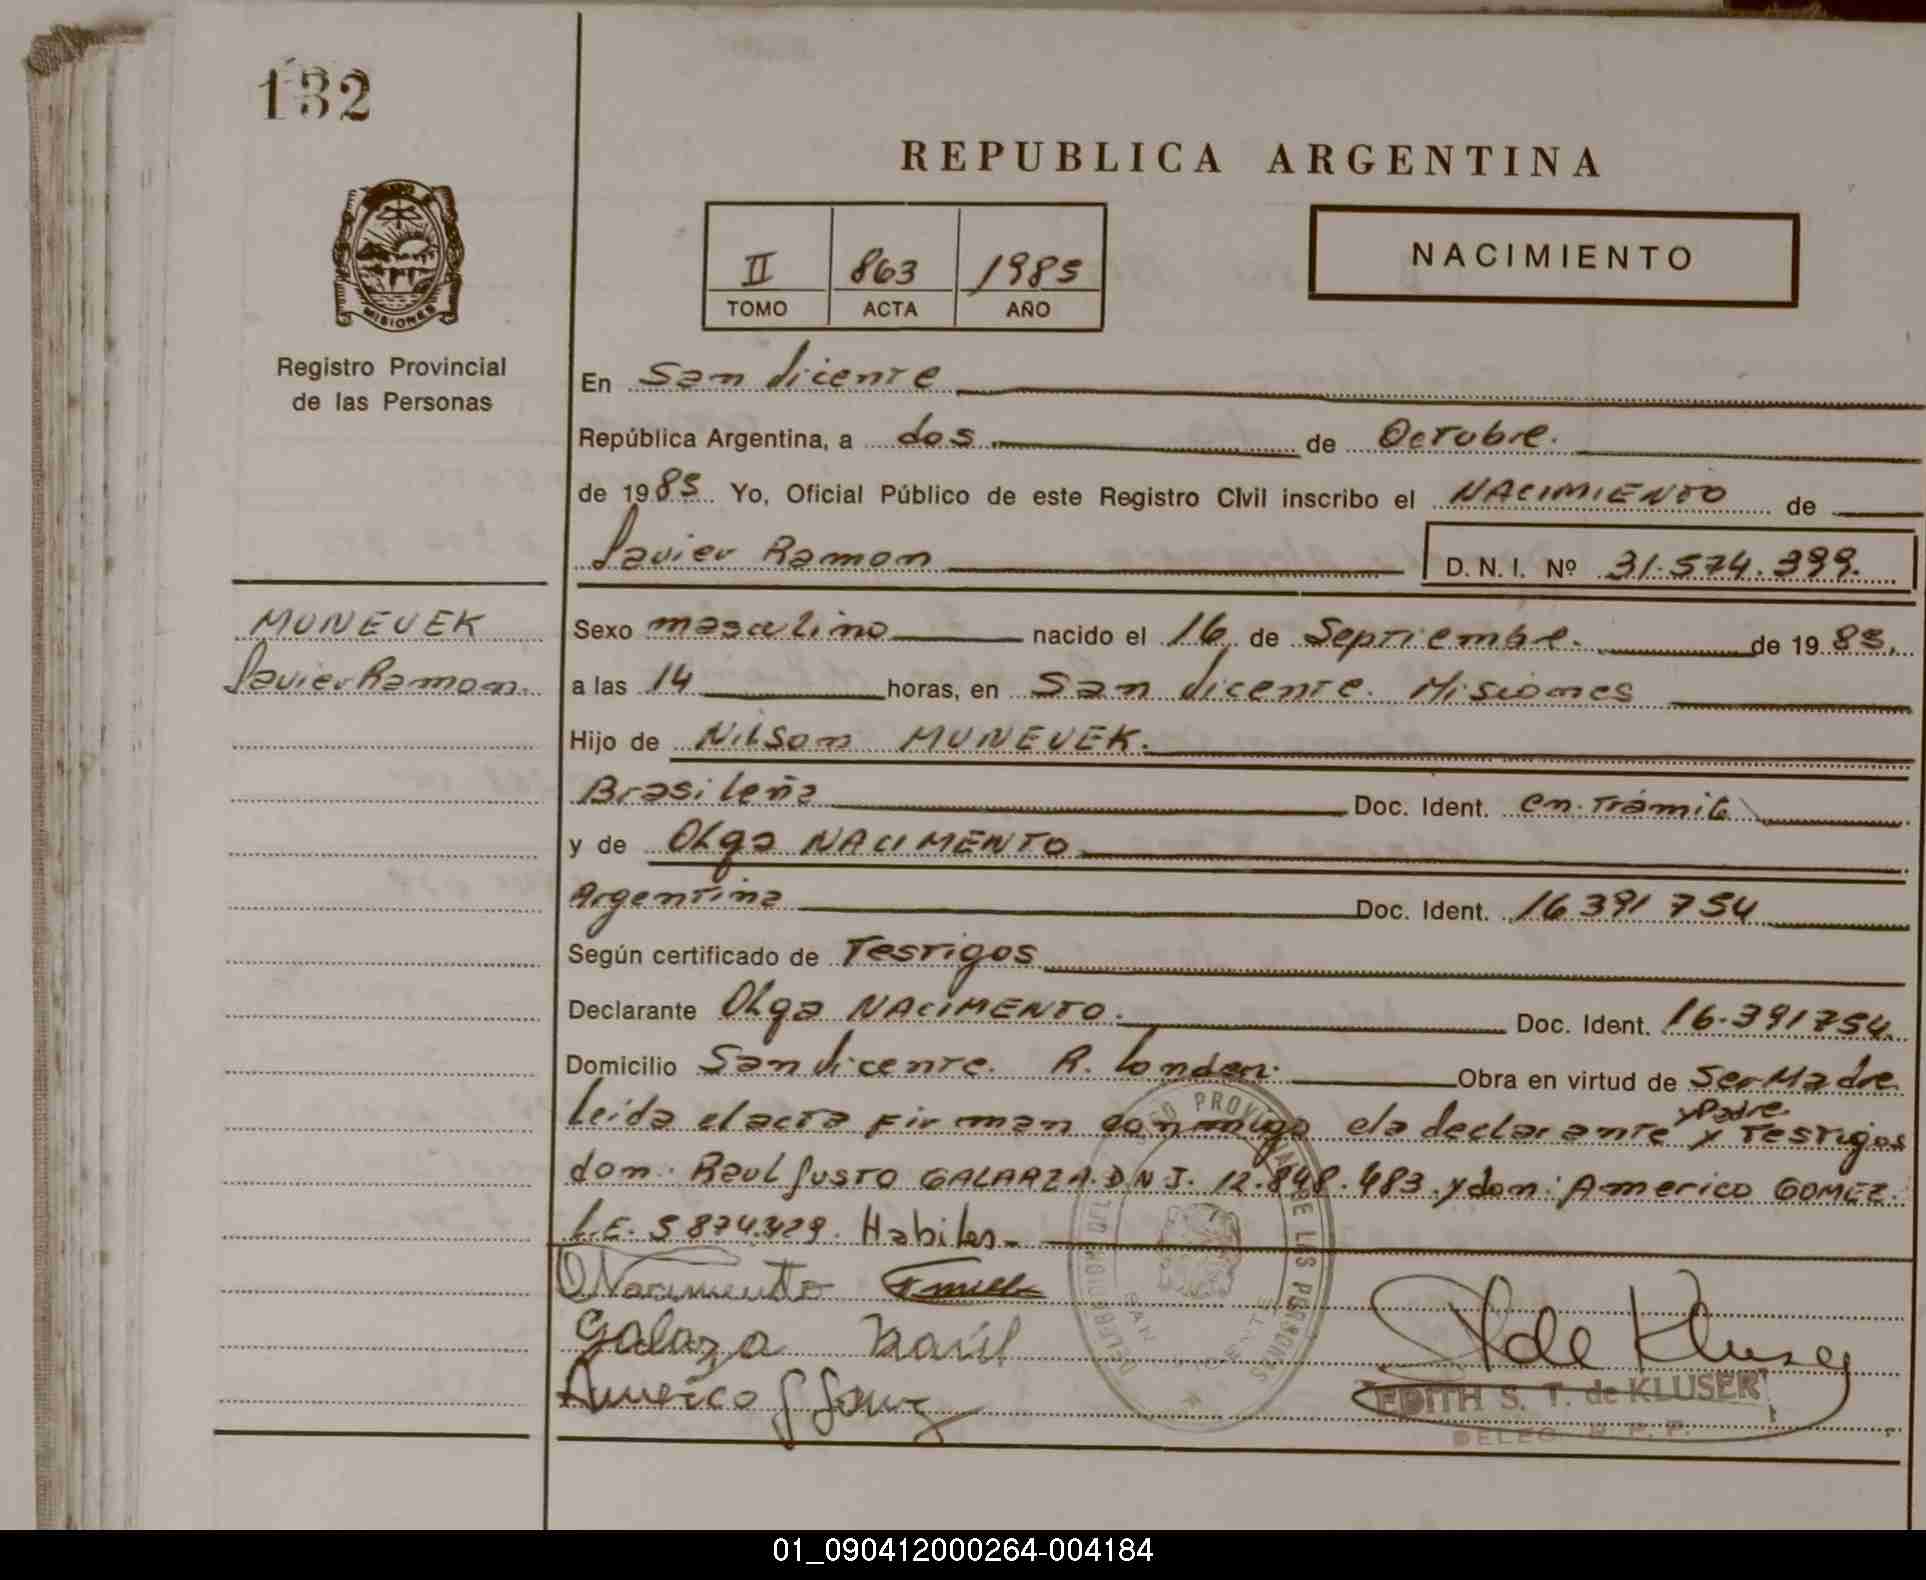 132
REPUBLICA ARGENTINA
NACIMIENTO
II 863 1985
TOMO ACTA AÑO
MISIONES
Registro Provincial
de las Personas
En San Vicente
República Argentina, a dos de Octubre.
de 1985 Yo, Oficial Público de este Registro Civil inscribo el NACIMIENTO de
Javier Ramon D.N.I. Nº 31.574.399.
MUNEVEK
Javier Ramon.
Sexo masculino nacido el 16 de Septiembre. de 1985.
a las 14 horas, en San Vicente. Misiones
Hijo de Nilson MUNEVEK.
Brasileña Doc. Ident. en. Trámite
y de Olga NACIMENTO
Argentina Doc. Ident. 16 391 754
Según certificado de Testigos
Declarante Olga NACIMENTO. Doc. Ident. 16.391754.
Domicilio San Vicente. R. Londen. Obra en virtud de Ser Madre
y Padre.
Leida el acta Firman conmigo la declarante y Testigos
don: Raul Justo GALARZA. D N I. 12.848.483. y don: Americo GOMEZ.
L.E. 5 874.429. Habiles.
O Nacimento
Galaza Raúl
Americo G Gomez
de Kluser
EDITH S. T. de KLUSER
DELEG. R. P. P.
SAN VICENTE
01_090412000264-004184